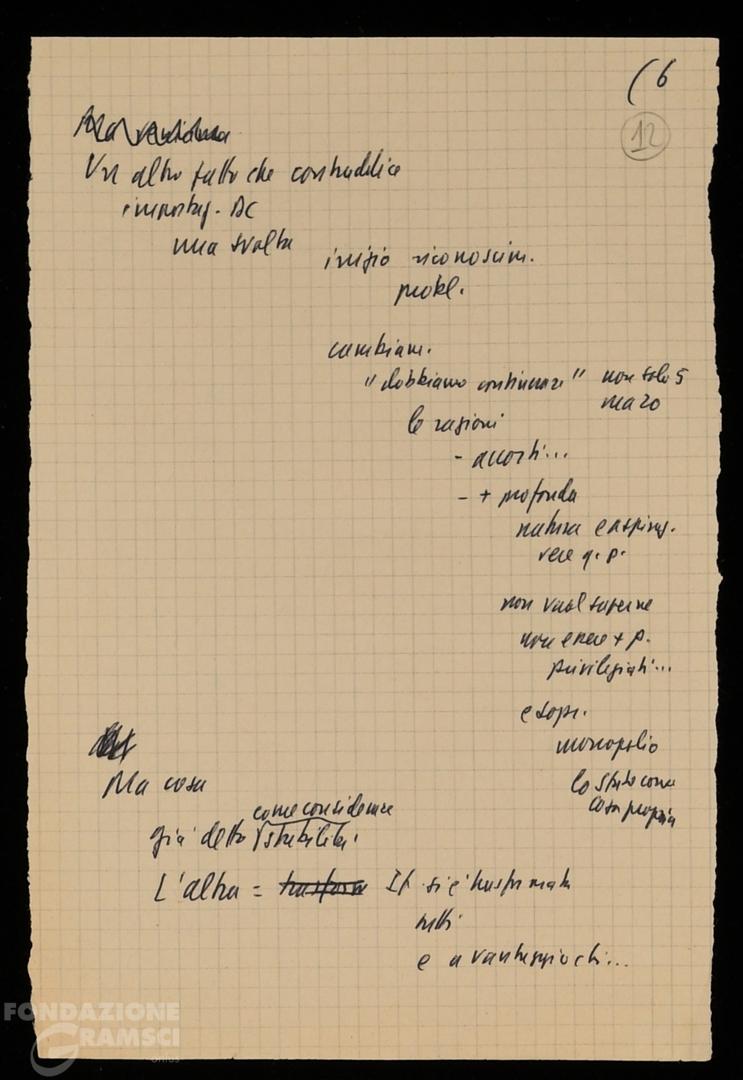 (6
12
Un altro fatto che contraddice
impostaz. DC
una svolta
inizio riconoscim.
probl.
cambiam.
"dobbiamo continuare" non solo 5
ma 20
le ragioni
- accorti...
- + profonda
natura e aspiraz.
vere q. p.
non vuol saperne
non essere + p.
privilegiati...
e sopr.
monopolio
lo stato come
cosa propria
Ma cosa
come considerare
già detto stabilità
L'altra = It si è trasformata
tutti
e a vantaggio di...
FONDAZIONE
GRAMSCI
onlus